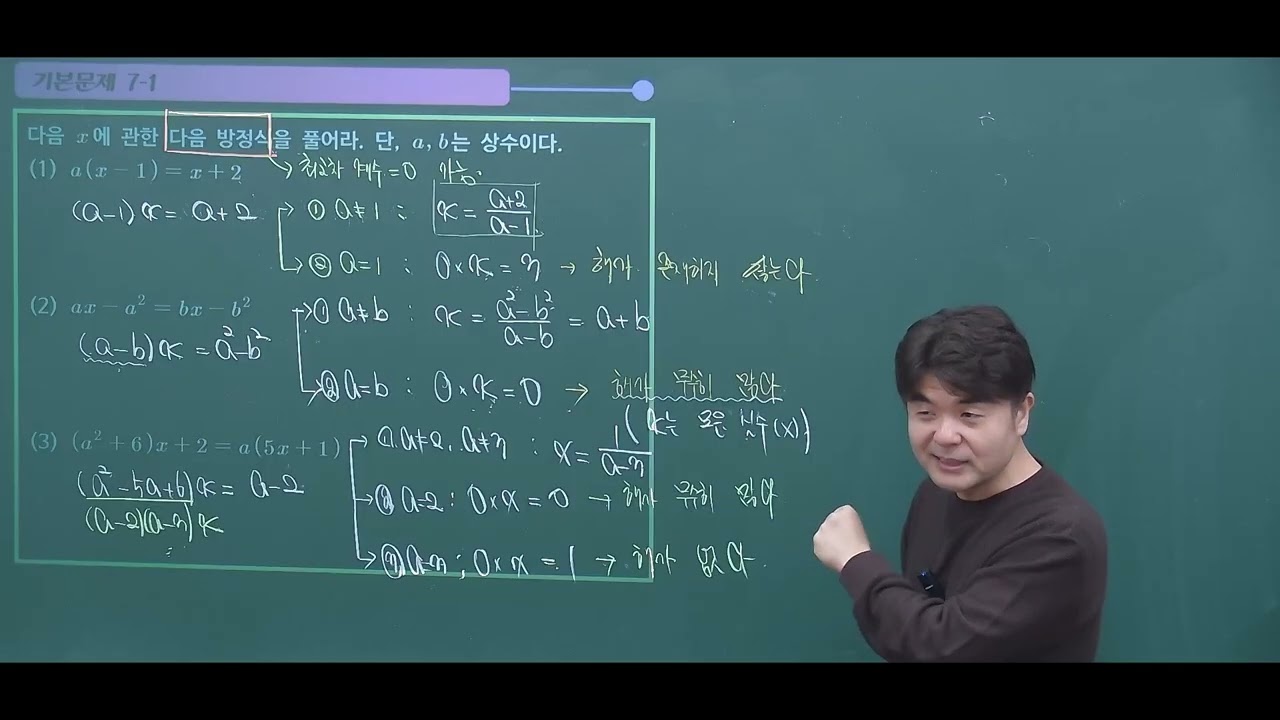 기본문제 7-1
다음 x에 관한 다음 방정식을 풀어라. 단, a, b는 상수이다.
(1) a(x-1)=x+2 → 최고차 계수=0 가능.
(a-1)x=a+2 → ① a≠1 : x=\frac{a+2}{a-1}
→ ② a=1 : 0×x=3 → 해가 존재하지 않는다.
(2) ax-a²=bx-b² → ① a≠b : x=\frac{a²-b²}{a-b}=a+b
(a-b)x=a²-b²
→ ② a=b : 0×x=0 → 해가 무수히 많다
(x는 모든 실수(x))
(3) (a²+6)x+2=a(5x+1) → ① a≠2, a≠3 : x=\frac{1}{a-3}
(a²-5a+6)x=a-2
(a-2)(a-3)x
→ ② a=2 : 0×x=0 → 해가 무수히 많다
→ ③ a=3 ; 0×x=1 → 해가 없다.